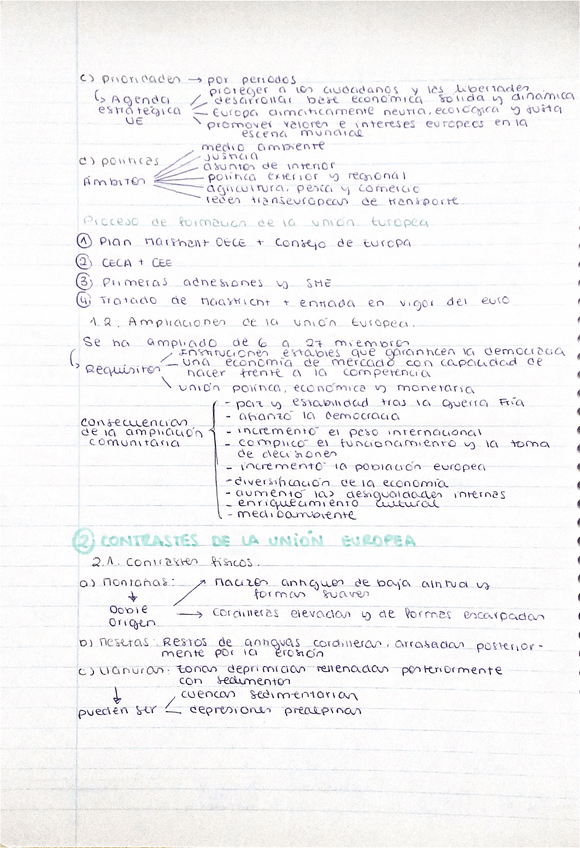 c) prioridades → por periodos
↳ Agenda estratégica UE
proteger a los ciudadanos y las libertades
desarrollar base económica solida y dinámica
Europa climáticamente neutra, ecológica y justa
promover valores e intereses europeos en la
escena mundial
d) políticas
Ámbitos
medio ambiente
justicia
asuntos de interior
política exterior y regional
agricultura, pesca y comercio
redes transeuropeas de transporte
Proceso de formación de la unión Europea
① Plan Marshall OECE + Consejo de Europa
② CECA + CEE
③ Primeras adhesiones y SME
④ Tratado de Maastricht + entrada en vigor del euro
1.2. Ampliaciones de la unión Europea.
Se ha ampliado de 6 a 27 miembros
↳ Requisitos
Instituciones estables que garanticen la democracia
una economía de mercado con capacidad de
hacer frente a la competencia
unión política, económica y monetaria
consecuencias
de la ampliación
comunitaria
- paz y estabilidad tras la guerra Fría
- afianzó la democracia
- incrementó el peso internacional
- complicó el funcionamiento y la toma
de decisiones
- incrementó la población europea
- diversificación de la economía
- aumentó las desigualdades internas
- enriquecimiento cultural
- medioambiente
② CONTRASTES DE LA UNIÓN EUROPEA
2.1. Contrastes físicos.
a) Montañas:
↓
Doble
Origen
→ Macizos antiguos de baja altitud y
formas suaves
→ Cordilleras elevadas y de formas escarpadas
b) Mesetas: Restos de antiguas cordilleras, arrasadas posterior-
mente por la erosión
c) Llanuras: zonas deprimidas rellenadas posteriormente
con sedimentos
↓
pueden ser
cuencas sedimentarias
depresiones prealpinas